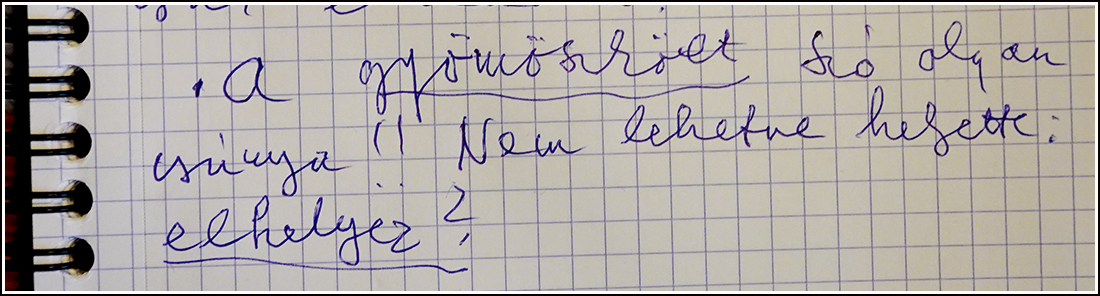 . A gyömöszölt szó olyan
csúnya!! Nem lehetne helyette:
elhelyez?